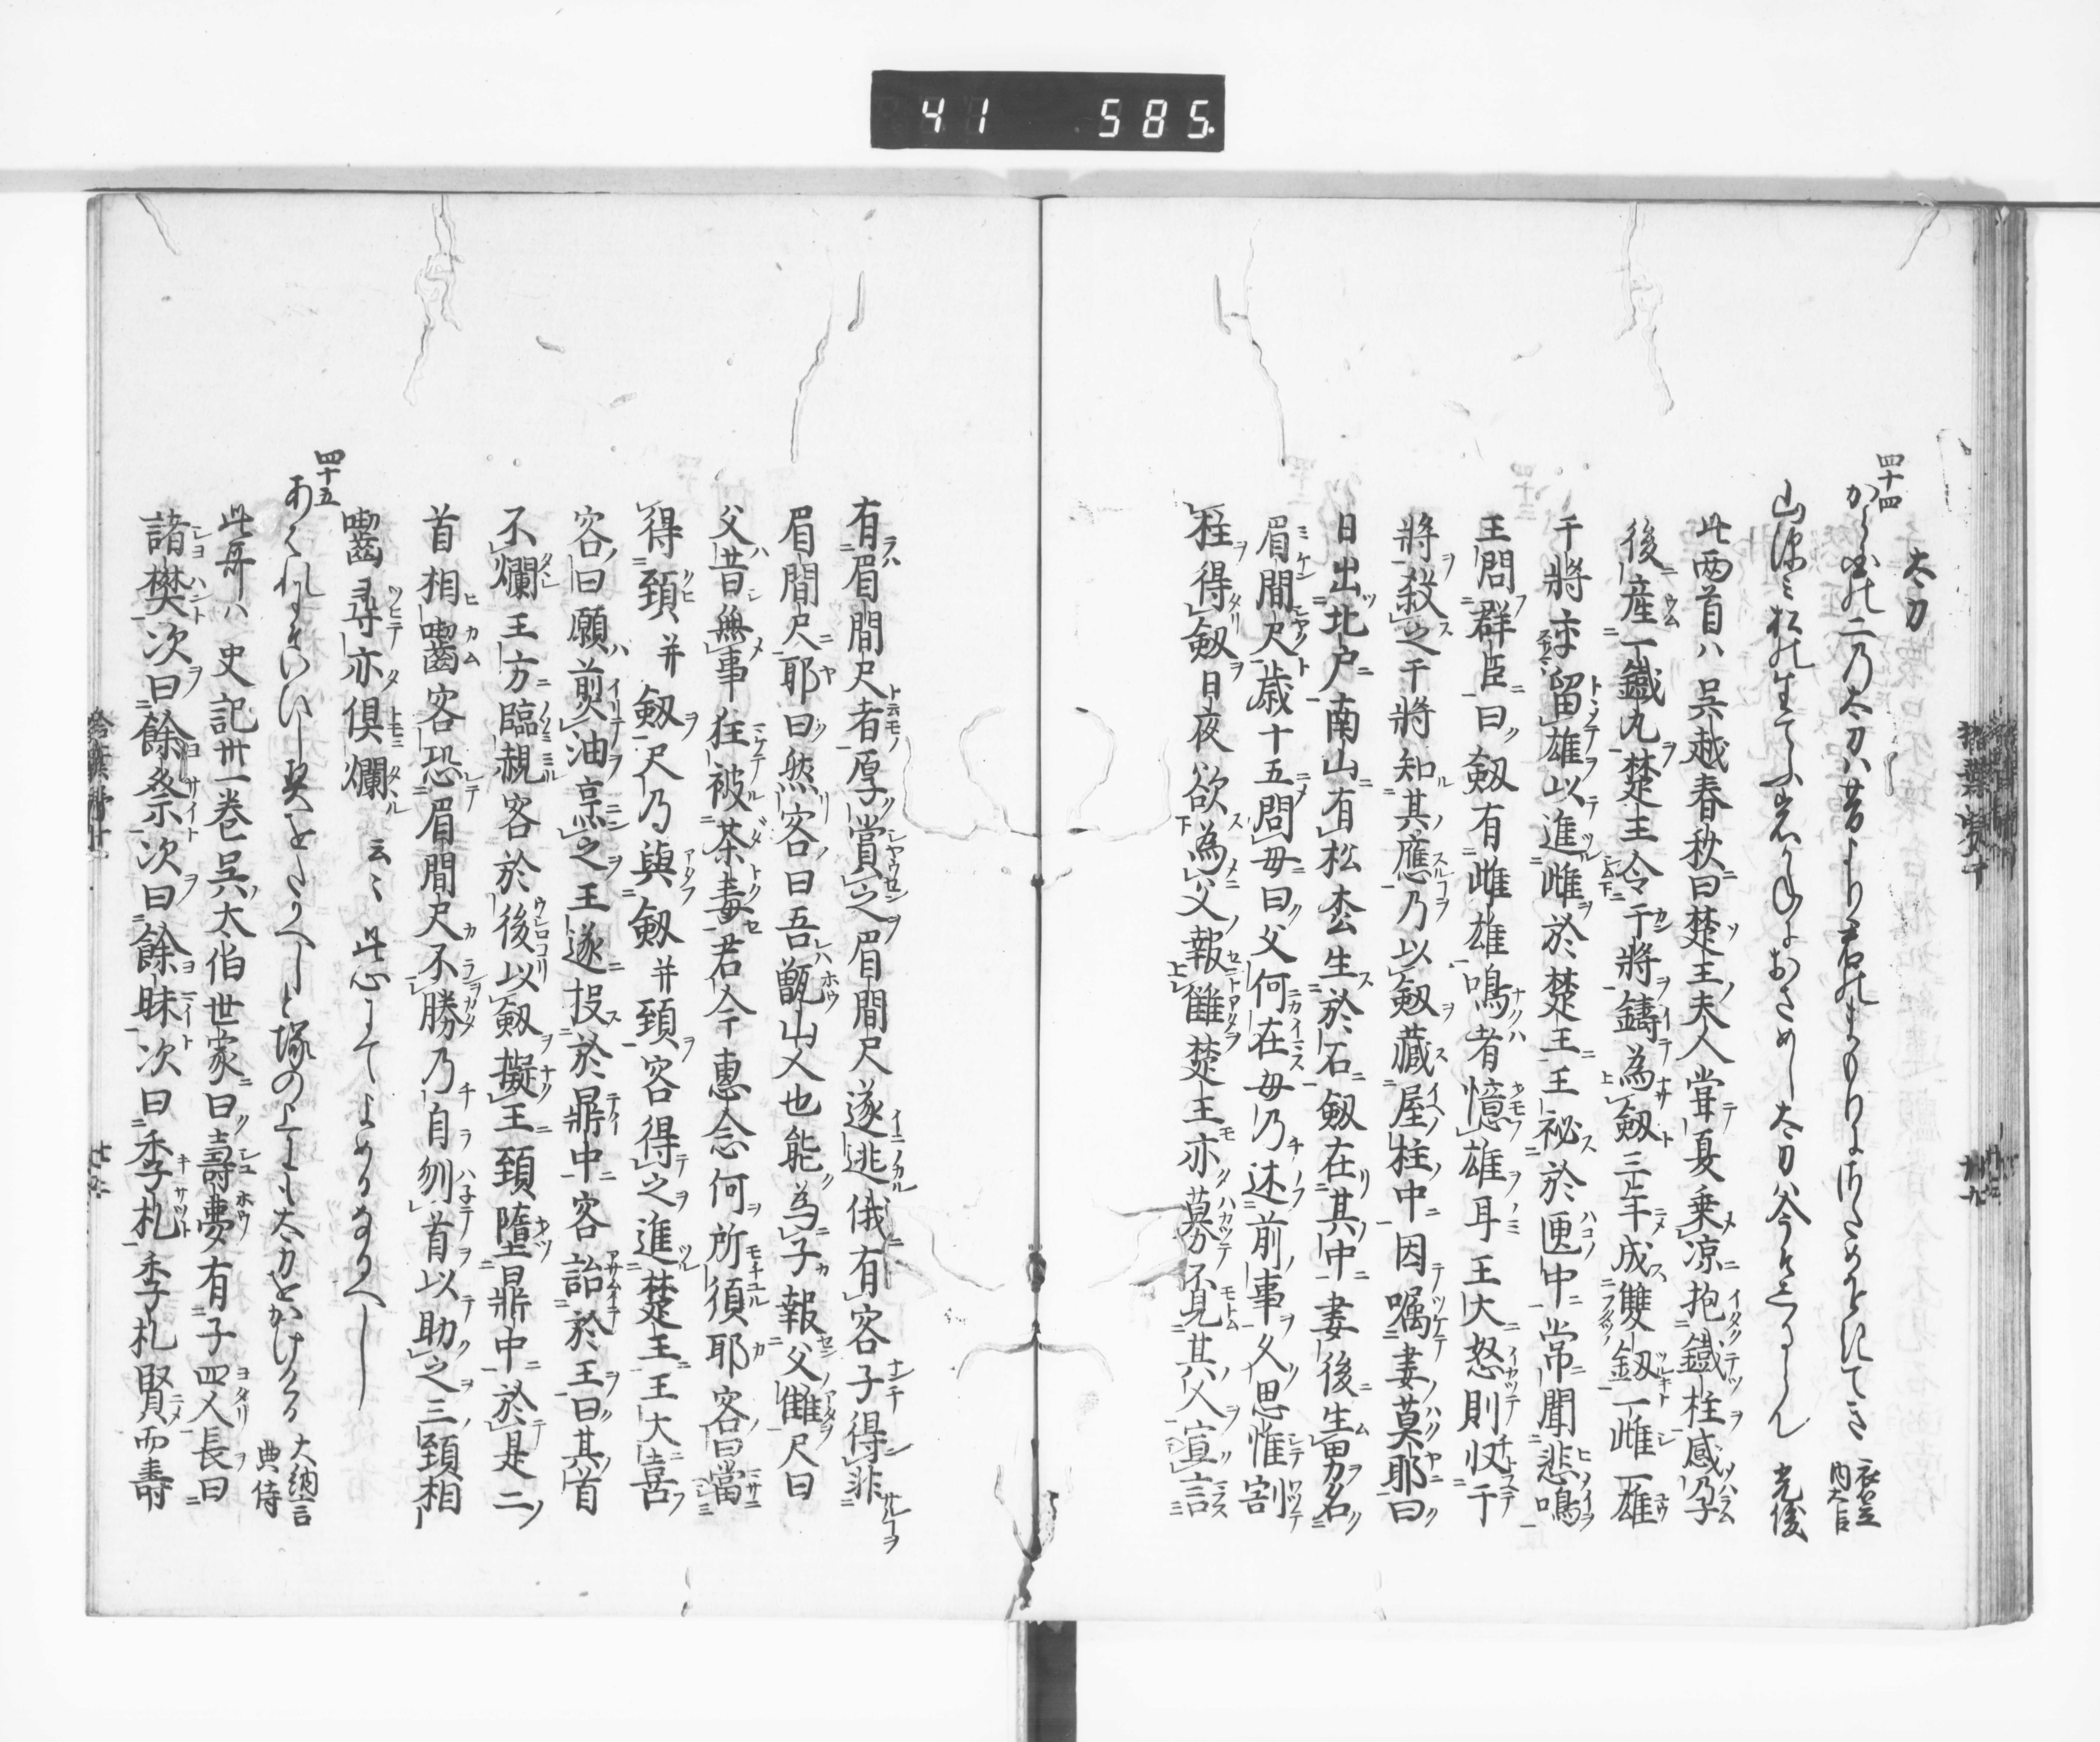 41 585
太刀
四十四
から国の二乃太刀ハ昔より君のまもりに
衣笠内大臣
山
おさめし太刀
光俊
此両首ハ呉越春秋曰楚王夫人甞夏乗凉抱鐡柱感乃孕
後産一鐡丸楚王令干將鑄為釼三年成雙釼一雌一雄
干將密留雄以進雌於楚王王祕於匣中常聞悲鳴
王問群臣曰釼有雌雄鳴者憶雄耳王大怒則收干
將殺之干將知其應乃以釼藏屋柱中因嘱妻莫耶曰
日出北戸南山有松枩生於石釼在其中妻後生男名
眉間尺歳十五問母曰父何在母乃述前事久思惟割
柱得釼日夜欲為父報讎楚王亦募不見其人宣言
有眉間尺者厚賞之眉間尺遂逃俄有客子得非
眉間尺耶曰然客曰吾甑山人也能為子報父讎尺曰
父昔無事狂被茶毒君今惠念何所須耶客曰當
得頸并釼尺乃與釼并頸客得之進楚王王大喜
客曰願煎油烹之王遂投於鼎中客詒於王曰其首
不爛王方臨覩客於後以釼擬王頸墮鼎中於是二
首相囓客恐眉間尺不勝乃自刎首以助之三頸相
囓尋亦倶爛 云々 此心にてよめるなるへし
四十五
あくれまていひし契をたかへしと塚の上にも太刀をかけける
大納言典侍
此哥ハ史記卅一巻呉太伯世家曰壽夢有子四人長曰
諸樊次曰餘祭次曰餘昧次曰季札季札賢而壽